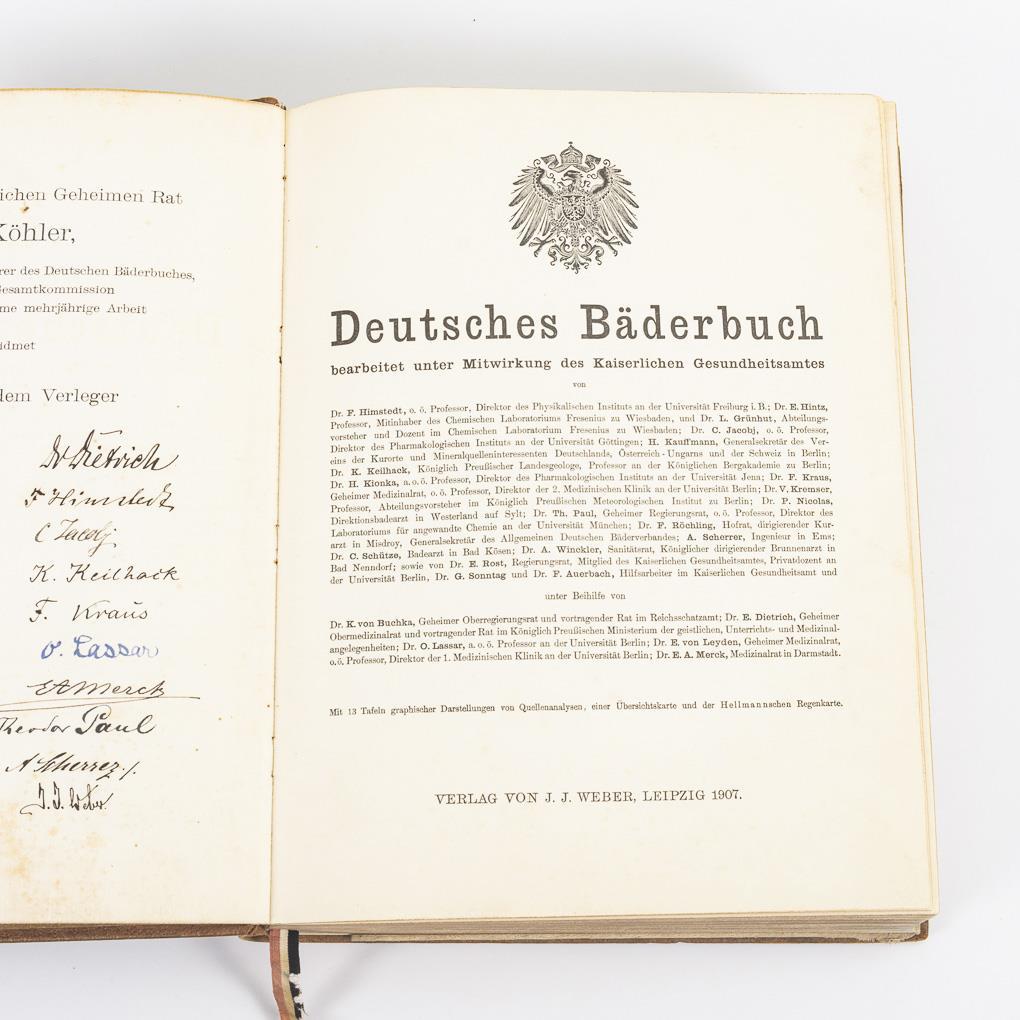 lichen Geheimen Rat
Köhler,
rer des Deutschen Bäderbuches,
Gesamtkommission
me mehrjährige Arbeit
idmet
dem Verleger
Dr Dietrich
F Himstedt
C Jacobj
K. Keilhack
F. Kraus
O. Lassar
EAMerck
Theodor Paul
A Scherrer
J. J. Weber
Deutsches Bäderbuch
bearbeitet unter Mitwirkung des Kaiserlichen Gesundheitsamtes
von
Dr. F. Himstedt, o. ö. Professor, Direktor des Physikalischen Instituts an der Universität Freiburg i. B.; Dr. E. Hintz,
Professor, Mitinhaber des Chemischen Laboratoriums Fresenius zu Wiesbaden, und Dr. L. Grünhut, Abteilungs-
vorsteher und Dozent im Chemischen Laboratorium Fresenius zu Wiesbaden; Dr. C. Jacobj, o. ö. Professor,
Direktor des Pharmakologischen Instituts an der Universität Göttingen; H. Kauffmann, Generalsekretär des Ver-
eins der Kurorte und Mineralquelleninteressenten Deutschlands, Österreich-Ungarns und der Schweiz in Berlin;
Dr. K. Keilhack, Königlich Preußischer Landesgeologe, Professor an der Königlichen Bergakademie zu Berlin;
Dr. H. Kionka, a. o. ö. Professor, Direktor des Pharmakologischen Instituts an der Universität Jena; Dr. F. Kraus,
Geheimer Medizinalrat, o. ö. Professor, Direktor der 2. Medizinischen Klinik an der Universität Berlin; Dr. V. Kremser,
Professor, Abteilungsvorsteher im Königlich Preußischen Meteorologischen Institut zu Berlin; Dr. P. Nicolas,
Direktionsbadearzt in Westerland auf Sylt; Dr. Th. Paul, Geheimer Regierungsrat, o. ö. Professor, Direktor des
Laboratoriums für angewandte Chemie an der Universität München; Dr. F. Röchling, Hofrat, dirigierender Kur-
arzt in Misdroy, Generalsekretär des Allgemeinen Deutschen Bäderverbandes; A. Scherrer, Ingenieur in Ems;
Dr. C. Schütze, Badearzt in Bad Kösen; Dr. A. Winckler, Sanitätsrat, Königlicher dirigierender Brunnenarzt in
Bad Nenndorf; sowie von Dr. E. Rost, Regierungsrat, Mitglied des Kaiserlichen Gesundheitsamtes, Privatdozent an
der Universität Berlin, Dr. G. Sonntag und Dr. F. Auerbach, Hilfsarbeiter im Kaiserlichen Gesundheitsamt und
unter Beihilfe von
Dr. K. von Buchka, Geheimer Oberregierungsrat und vortragender Rat im Reichsschatzamt; Dr. E. Dietrich, Geheimer
Obermedizinalrat und vortragender Rat im Königlich Preußischen Ministerium der geistlichen, Unterrichts- und Medizinal-
angelegenheiten; Dr. O. Lassar, a. o. ö. Professor an der Universität Berlin; Dr. E. von Leyden, Geheimer Medizinalrat,
o. ö. Professor, Direktor der 1. Medizinischen Klinik an der Universität Berlin; Dr. E. A. Merck, Medizinalrat in Darmstadt.
Mit 13 Tafeln graphischer Darstellungen von Quellenanalysen, einer Übersichtskarte und der Hellmannschen Regenkarte.
VERLAG VON J. J. WEBER, LEIPZIG 1907.